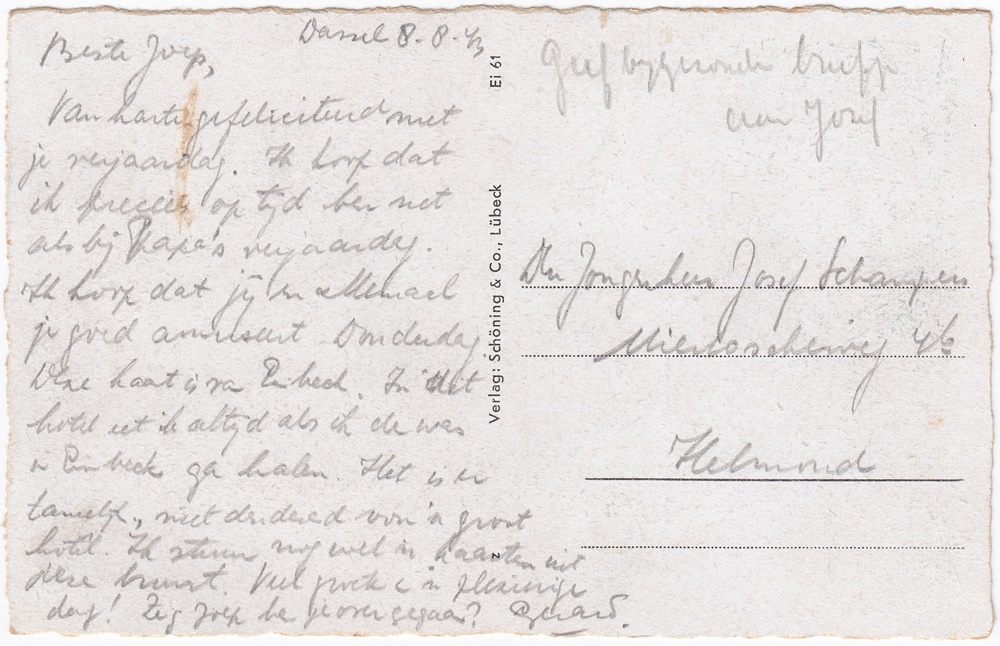 Dassel 8-8-43
Beste Joep,
Van harte gefeliciteerd met
je verjaardag. Ik hoop dat
ik precies op tijd ben net
als bij Papa's verjaardag.
Ik hoop dat jij en allemaal
je goed amuseert Donderdag
Deze kaart is van Einbeck. In dit
hotel eet ik altijd als ik de was
in Einbeck ga halen. Het is er
niet denderend voor 'n groot
hotel. Ik stuur nog wel 'n kaarten uit
deze buurt. Veel pret en 'n plezierige
dag! Zeg Joep ben je overgegaan? Gerard.
Ei 61
Verlag: Schöning & Co., Lübeck
z
Geef bijgaande briefje
aan Josef
Den Jongenheer Josef Schampers
Mierloscheweg 46
Helmond